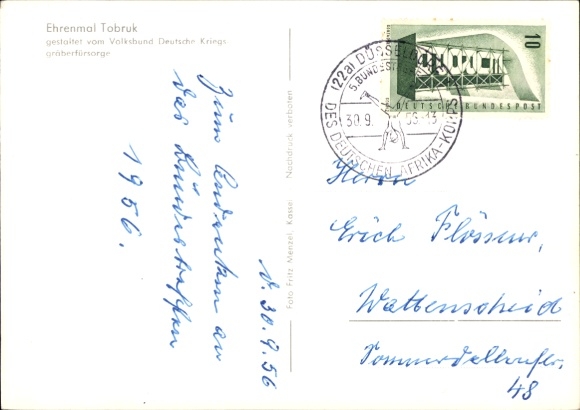 Ehrenmal Tobruk
gestaltet vom Volksbund Deutsche Kriegs
gräberfürsorge
Zum Andenken an
das Bündestreffen
1956.
d. 30.9.56
Foto Fritz Menzel, Kassel Nachdruck verboten
(22a) DÜSSELDORF
5. BUNDESTREFFEN
30.9. 56-13
DES DEUTSCHEN AFRIKA-KORPS
EUROPA
10
DEUTSCHE BUNDESPOST
Herrn
Erich Flössner,
Wattenscheid
48